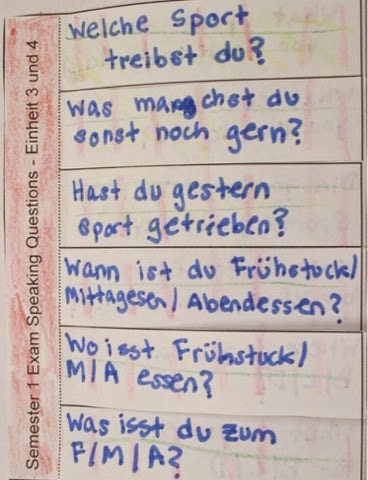 Semester 1 Exam Speaking Questions - Einheit 3 und 4
Welche Sport
treibst du?
Was mangchst du
sonst noch gern?
Hast du gestern
sport getrieben?
Wann ist du Frühstuck/
Mittagesen/Abendessen?
Wo isst Frühstuck/
M/A essen?
Was isst du zum
F/M/A?